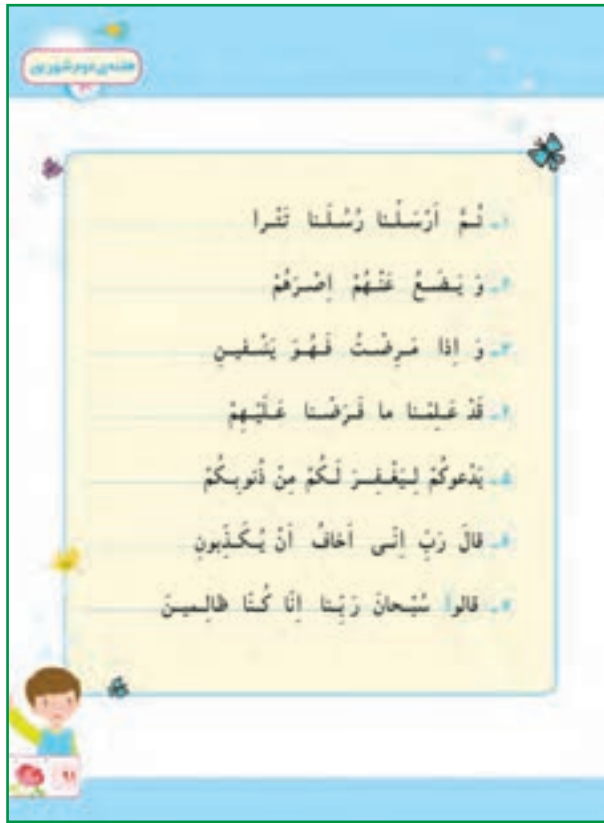 هفته‌ی دوم شهریور
۱ـ ثُمَّ اَرْسَلْنا رُسُلَنا تَتْرا
۲ـ وَ يَضَعُ عَنْهُمْ اِصْرَهُمْ
۳ـ وَ اِذا مَرِضْتُ فَهُوَ يَشْفينِ
۴ـ قَدْ عَلِمْنا ما فَرَضْنا عَلَيْهِمْ
۵ـ يَدْعوكُمْ لِيَغْفِرَ لَكُمْ مِنْ ذُنوبِكُمْ
۶ـ قالَ رَبِّ اِنّى اَخافُ اَنْ يُكَذِّبونِ
۷ـ قالوا سُبْحانَ رَبِّنا اِنّا كُنّا ظالِمينَ
۹۱